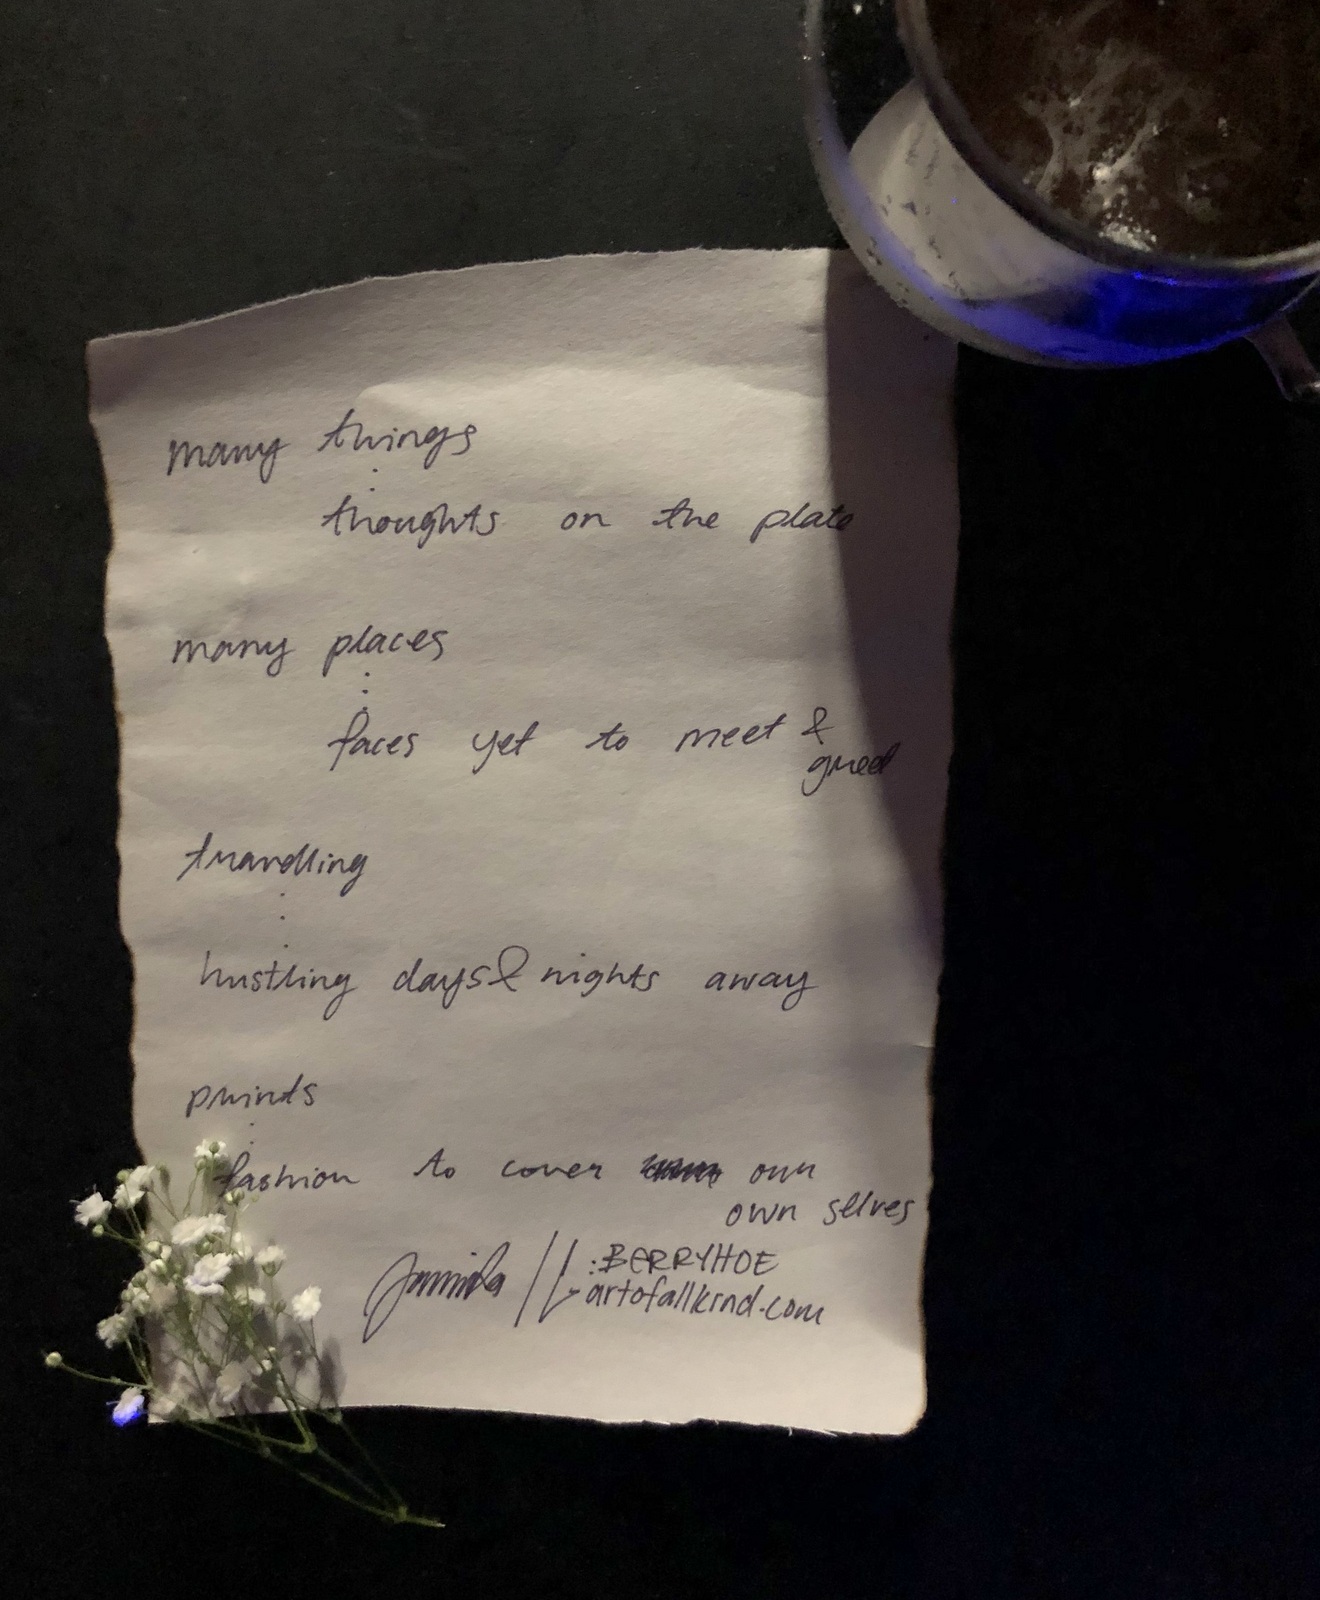 many things
:
thoughts on the plate
many places
:
faces yet to meet &
greet
travelling
:
hustling days & nights away
prints
:
fashion to cover our
own selves
Jamila // :BERRYHOE
artofallkind.com